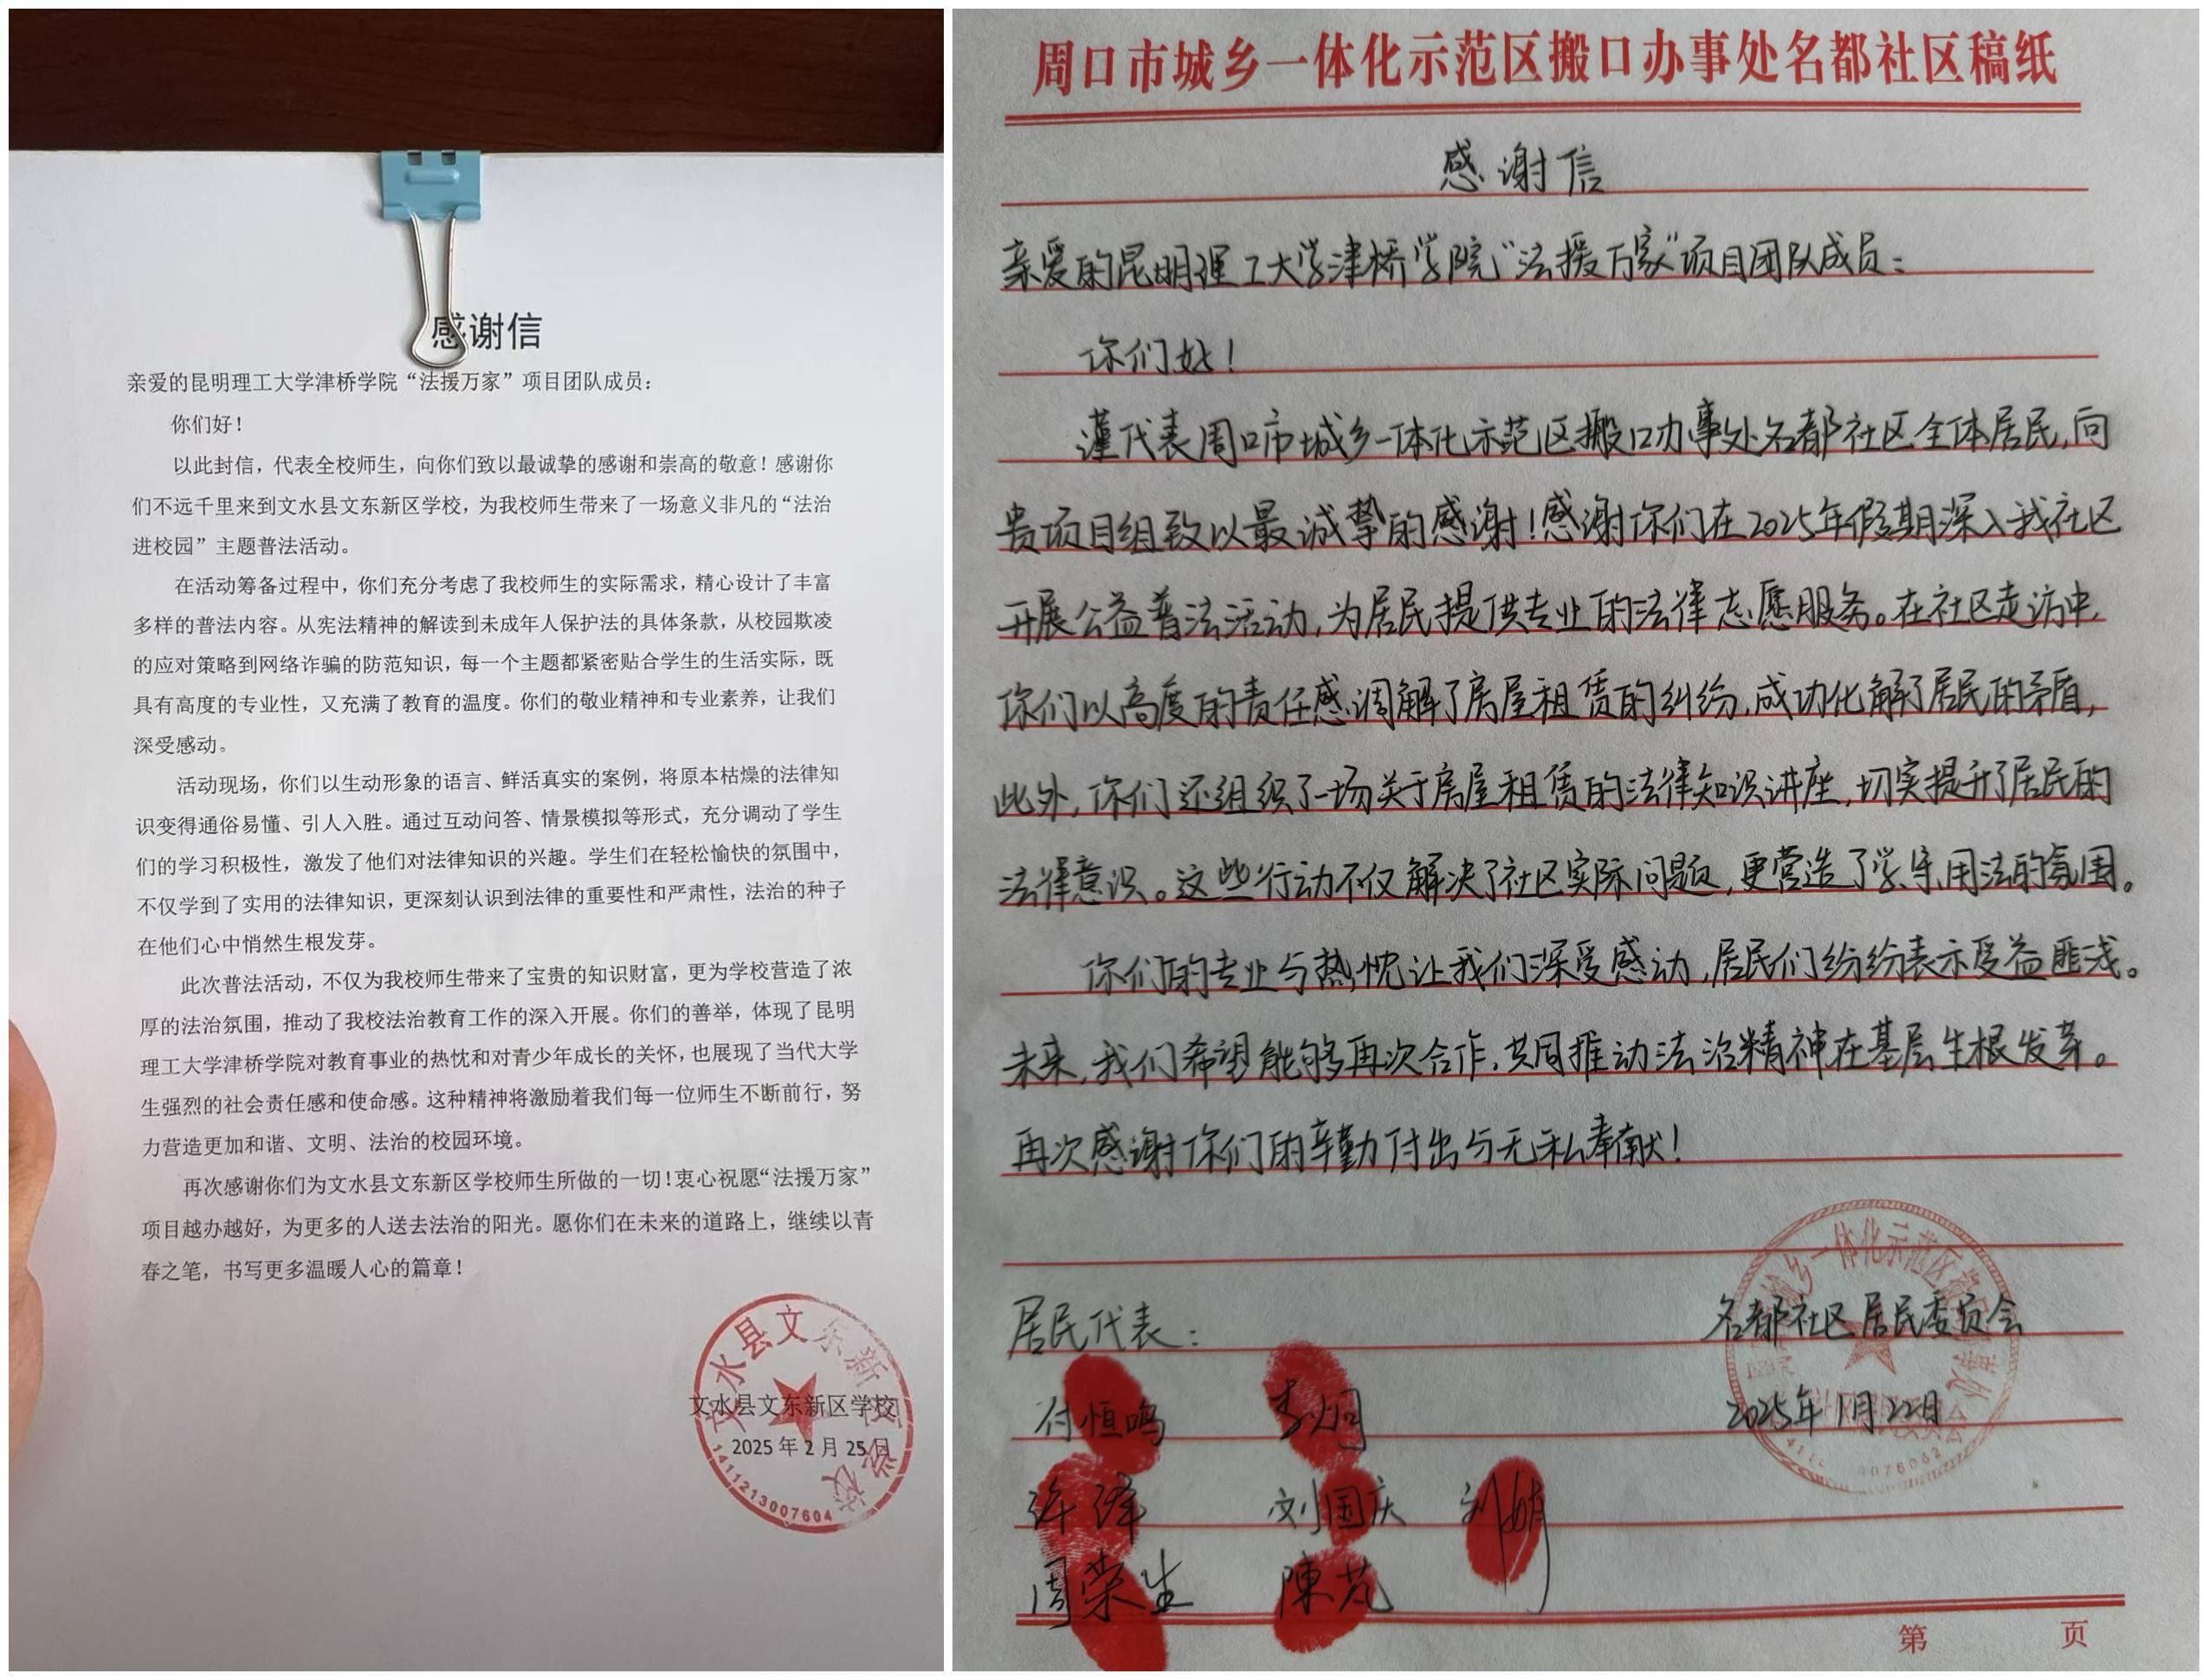 感谢信
亲爱的昆明理工大学津桥学院“法援万家”项目团队成员：
你们好！
以此封信，代表全校师生，向你们致以最诚挚的感谢和崇高的敬意！感谢你
们不远千里来到文水县文东新区学校，为我校师生带来了一场意义非凡的“法治
进校园”主题普法活动。
在活动筹备过程中，你们充分考虑了我校师生的实际需求，精心设计了丰富
多样的普法内容。从宪法精神的解读到未成年人保护法的具体条款，从校园欺凌
的应对策略到网络诈骗的防范知识，每一个主题都紧密贴合学生的生活实际，既
具有高度的专业性，又充满了教育的温度。你们的敬业精神和专业素养，让我们
深受感动。
活动现场，你们以生动形象的语言、鲜活真实的案例，将原本枯燥的法律知
识变得通俗易懂、引人入胜。通过互动问答、情景模拟等形式，充分调动了学生
们的学习积极性，激发了他们对法律知识的兴趣。学生们在轻松愉快的氛围中，
不仅学到了实用的法律知识，更深刻认识到法律的重要性和严肃性，法治的种子
在他们心中悄然生根发芽。
此次普法活动，不仅为我校师生带来了宝贵的知识财富，更为学校营造了浓
厚的法治氛围，推动了我校法治教育工作的深入开展。你们的善举，体现了昆明
理工大学津桥学院对教育事业的热忱和对青少年成长的关怀，也展现了当代大学
生强烈的社会责任感和使命感。这种精神将激励着我们每一位师生不断前行，努
力营造更加和谐、文明、法治的校园环境。
再次感谢你们为文水县文东新区学校师生所做的一切！衷心祝愿“法援万家”
项目越办越好，为更多的人送去法治的阳光。愿你们在未来的道路上，继续以青
春之笔，书写更多温暖人心的篇章！
文水县文东新区学校
2025年2月25日
文水县文东新区学校
1411213007604
周口市城乡一体化示范区搬口办事处名都社区稿纸
感谢信
亲爱的昆明理工大学津桥学院“法援万家”项目团队成员：
你们好！
谨代表周口市城乡一体化示范区搬口办事处名都社区全体居民，向
贵项目组致以最诚挚的感谢！感谢你们在2025年假期深入我社区
开展公益普法活动，为居民提供专业的法律志愿服务。在社区走访中，
你们以高度的责任感调解了房屋租赁的纠纷，成功化解了居民的矛盾，
此外，你们还组织了一场关于房屋租赁的法律知识讲座，切实提升了居民的
法律意识。这些行动不仅解决了社区实际问题，更营造了学、守、用法的氛围。
你们的专业与热忱让我们深受感动，居民们纷纷表示受益匪浅。
未来，我们希望能够再次合作，共同推动法治精神在基层生根发芽。
再次感谢你们的辛勤付出与无私奉献！
居民代表：
名都社区居民委员会
2025年1月22日
付恒鸣
许泽
刘国庆
周荣生
第 页